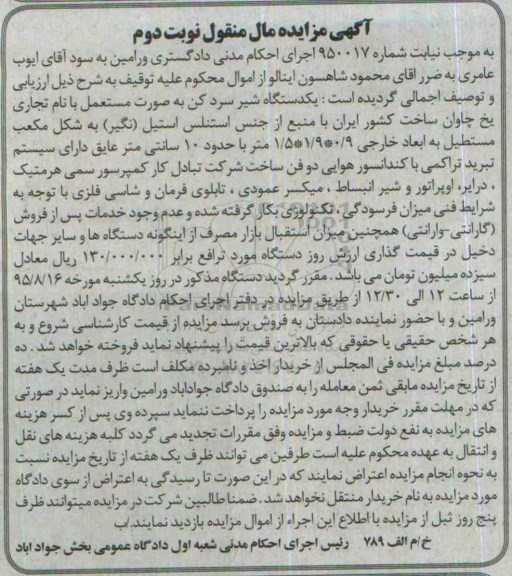 آگهی مزایده مال منقول نوبت دوم
به موجب نیابت شماره ۹۵۰۰۱۷ اجرای احکام مدنی دادگستری ورامین به سود آقای ایوب
عامری به ضرر اقای محمود شاهسون اینالو از اموال محکوم علیه توقیف به شرح ذیل ارزیابی
و توصیف اجمالی گردیده است : یکدستگاه شیر سرد کن به صورت مستعمل با نام تجاری
یخ چاوان ساخت کشور ایران با منبع از جنس استنلس استیل (نگیر) به شکل مکعب
مستطیل به ابعاد خارجی ۰/۹*۱/۹*۱/۵ متر با حدود ۱۰ سانتی متر عایق دارای سیستم
تبرید تراکمی با کندانسور هوایی دو فن ساخت شرکت تبادل کار کمپرسور سمی هرمتیک
، درایر، اوپراتور و شیر انبساط ، میکسر عمودی ، تابلوی فرمان و شاسی فلزی با توجه به
شرایط فنی میزان فرسودگی ، تکنولوژی بکار گرفته شده و عدم وجود خدمات پس از فروش
(گارانتی-وارانتی) همچنین میزان استقبال بازار مصرف از اینگونه دستگاه ها و سایر جهات
دخیل در قیمت گذاری ارزش روز دستگاه مورد ترافع برابر ۱۳۰/۰۰۰/۰۰۰ ریال معادل
سیزده میلیون تومان می باشد . مقرر گردید دستگاه مذکور در روز یکشنبه مورخه ۹۵/۸/۱۶
از ساعت ۱۲ الی ۱۲/۳۰ از طریق مزایده در دفتر اجرای احکام دادگاه جواد اباد شهرستان
ورامین و با حضور نماینده دادستان به فروش برسد مزایده از قیمت کارشناسی شروع و به
هر شخص حقیقی یا حقوقی که بالاترین قیمت را پیشنهاد نماید فروخته خواهد شد . ده
درصد مبلغ مزایده فی المجلس از خریدار اخذ و نامبرده مکلف است ظرف مدت یک هفته
از تاریخ مزایده مابقی ثمن معامله را به صندوق دادگاه جواداباد ورامین واریز نماید در صورتی
که در مهلت مقرر خریدار وجه مورد مزایده را پرداخت ننماید سپرده وی پس از کسر هزینه
های مزایده به نفع دولت ضبط و مزایده وفق مقررات تجدید می گردد کلیه هزینه های نقل
و انتقال به عهده محکوم علیه است طرفین می توانند ظرف یک هفته از تاریخ مزایده نسبت
به نحوه انجام مزایده اعتراض نمایند که در این صورت تا رسیدگی به اعتراض از سوی دادگاه
مورد مزایده به نام خریدار منتقل نخواهد شد . ضمنا طالبین شرکت در مزایده میتوانند ظرف
پنج روز ثبل از مزایده با اطلاع این اجراء از اموال مزایده بازدید نمایند./ب
خ/م الف ۷۸۹ رئیس اجرای احکام مدنی شعبه اول دادگاه عمومی بخش جواد اباد